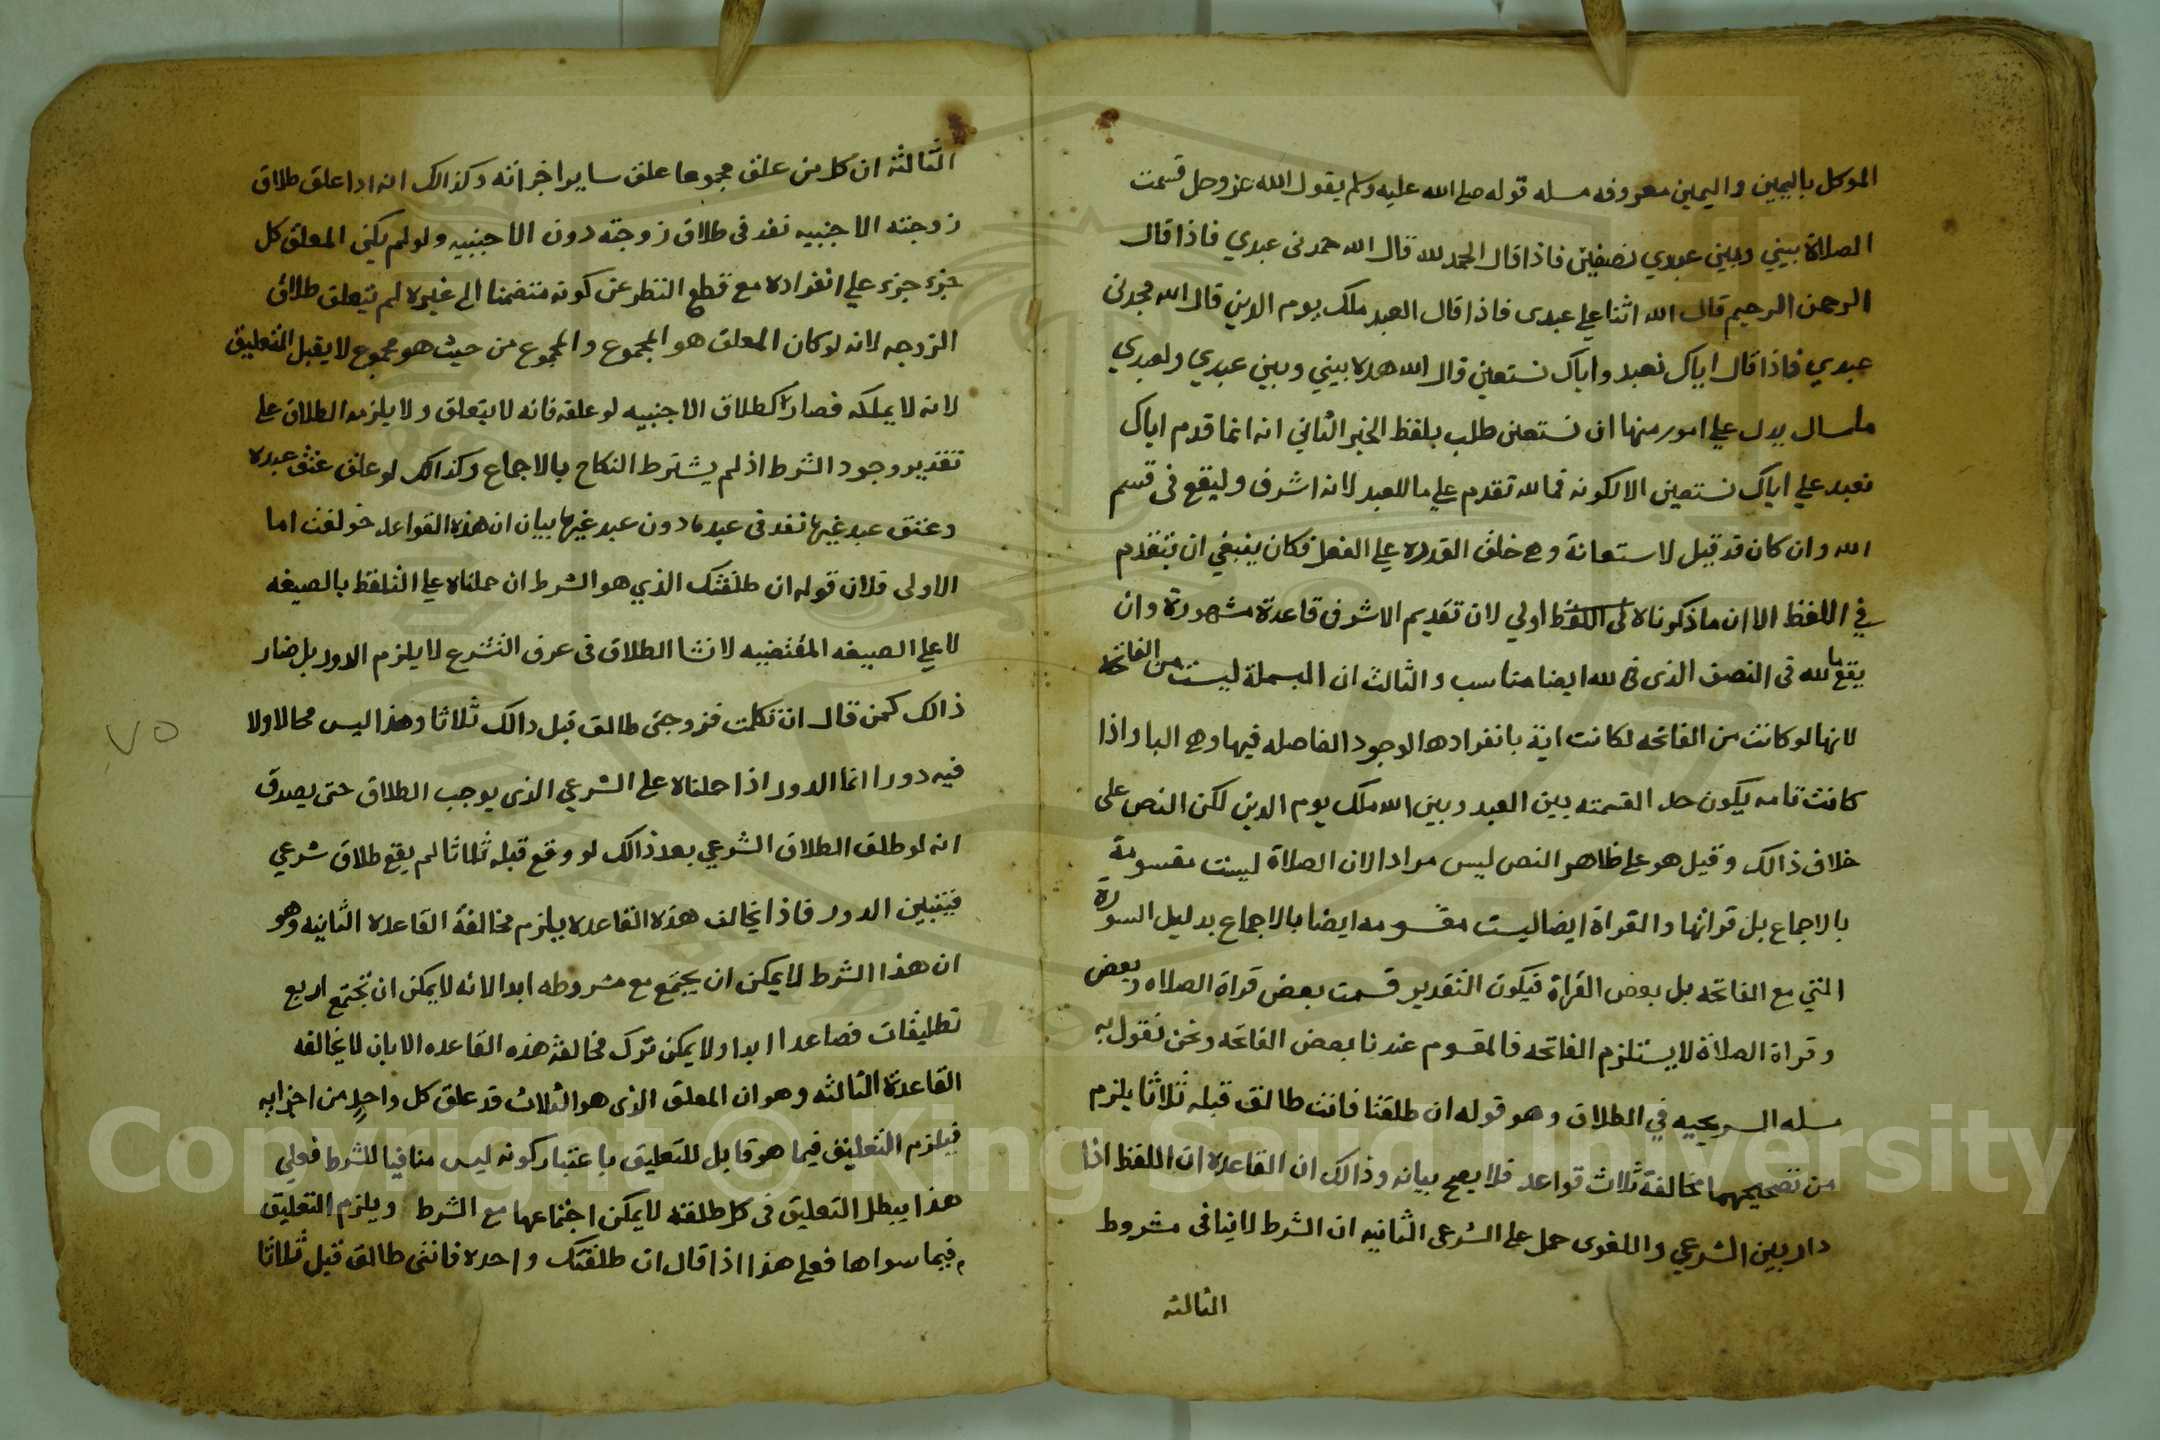 الموكل باليمين واليمين معروفه مسله قوله صلى الله عليه وسلم يقول الله عز وجل قسمت
الصلاة بيني وبين عبدي نصفين فاذا قال الحمد لله قال الله حمدنى عبدي فاذا قال
الرحمن الرحيم قال الله اثنا علي عبدى فاذا قال العبد ملك يوم الدين قال الله مجدنى
عبدي فاذا قال اياك نعبد واياك نستعين قال الله هده بيني وبين عبدي ولعبدي
ماسال يدل علي امور منها ان نستعين طلب بلفظ الخبر الثاني انه انما قدم اياك
نعبد علي اياك نستعين الا لكونه فما لله تقدم علي ما للعبد لانه اشرف وليقع فى قسم
الله وان كان قد قيل لاستعانة وهى خلق القدره علي الفعل فكان ينبغي ان تتقدم
في اللفظ الا ان ماذكرناه فى اللفظ اولي لان تقديم الاشرف قاعدة مشهورة وان
يقع ما لله فى النصف الذى هى لله ايضا مناسب والثالث ان البسملة ليست من الفاتحة
لانها لو كانت من الفاتحه لكانت اية بانفرادها لوجود الفاصله فيها وهى البا واذا
كانت تامه يكون حد القسمته بين العبد وبين الله ملك يوم الدين لكن النص على
خلاف ذالك وقيل هو علي ظاهر النص ليس مراد الان الصلاة ليست مقسومة
بالاجماع بل قراتها والقراة ايضا ليست مقسومه ايضا بالاجماع بدليل السورة
التي مع الفاتحه بل بعض القراة فيكون التقدير قسمت بعض قراة الصلاه وبعض
وقراة الصلاة لا يستلزم الفاتحه فالمقسوم عندنا بعض الفاتحه ونحن نقول به
مسله السريجيه في الطلاق وهو قوله ان طلقتا فانت طالق قبله ثلاثا يلزم
من تصحيحهما مخالفة ثلاث قواعد فلا يصح بيانه وذالك ان القاعده ان اللفظ اذا
دار بين الشرعي واللغوى حمل على الشرعى الثانيه ان الشرط لا ينافى مشروط
الثالثه
الثالثه ان كل من علق مجموعا علق ساير اجزائه وكذالك انه اذا علق طلاق
زوجته الاجنبيه نفد فى طلاق زوجته دون الاجنبيه ولو لم يكن المعلق كل
جزء جزء علي انفراده مع قطع النظر عن كونه منضما الى غيره لم يتعلق طلاق
الزوجه لانه لو كان المعلق هو المجموع والمجموع من حيث هو مجموع لا يقبل التعليق
لانه لا يملكه فصار كطلاق الاجنبيه لو علقه فانه لا يتعلق ولا يلزمه الطلاق على
تقدير وجود الشرط اذ لم يشترط النكاح بالاجماع وكذالك لو علق عتق عبده
وعتق عبد غيرها نفد فى عبدها دون عبد غيرها بيان ان هذه القواعد خولفت اما
الاولى فلان قوله ان طلقتك الذي هو الشرط ان حملناه علي التلفظ بالصيغه
لا علي الصيغه المقتضيه لانشا الطلاق فى عرف الشرع لا يلزم الدور بل صار
ذالك كمن قال ان تكلمت فزوجتى طالق قبل دالك ثلاثا وهذا ليس محالا ولا
فيه دورا انما الدور اذا حملناه على الشرعي الذى يوجب الطلاق حتى يصدق
انه لو طلق الطلاق الشرعي بعد ذالك لو وقع قبله ثلاثا لم يقع طلاق شرعي
فيتبين الدور فاذا يخالف هذه القاعده يلزم مخالفة القاعده الثانيه وهو
ان هذا الشرط لا يمكن ان يجتمع مع مشروطه ابدا لانه لا يمكن ان تجتمع اربع
تطليقات فصاعدا ابدا ولا يمكن ترك مخالفة هذه القاعده الا بان لا يخالفه
القاعدة الثالثه وهو ان المعلق الذى هو الثلاث قد علق كل واحد من اجزايه
فيلزم التعليق فيما هو قابل للتعليق باعتبار كونه ليس منافيا للشرط فعلي
هذا يبطل التعليق فى كل طلقه لا يمكن اجتماعها مع الشرط ويلزم التعليق
فيما سواها فعلى هذا اذا قال ان طلقتك واحده فانتى طالق قبل ثلاثا
٧٥
Copyright © King Saud University